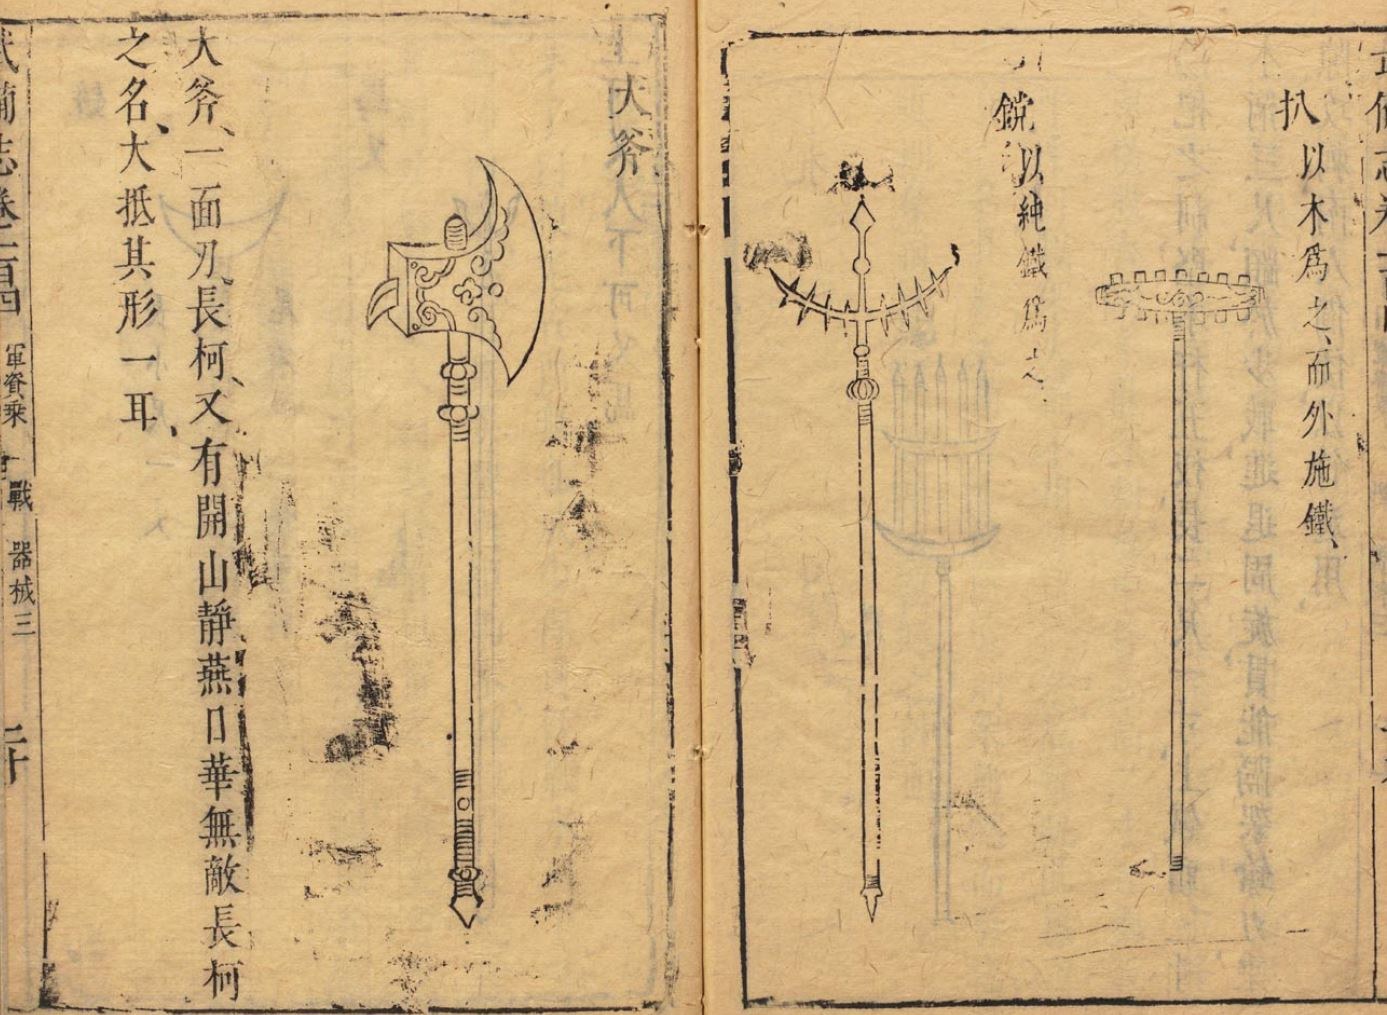 扒 以木爲之、而外施鐵、
鎲 以純鐵爲之、
大斧
大斧、一面刃、長柯、又有開山靜燕日華無敵長柯
之名、大抵其形一耳、
武備志卷一百四 軍資乘 戰 器械三 二十